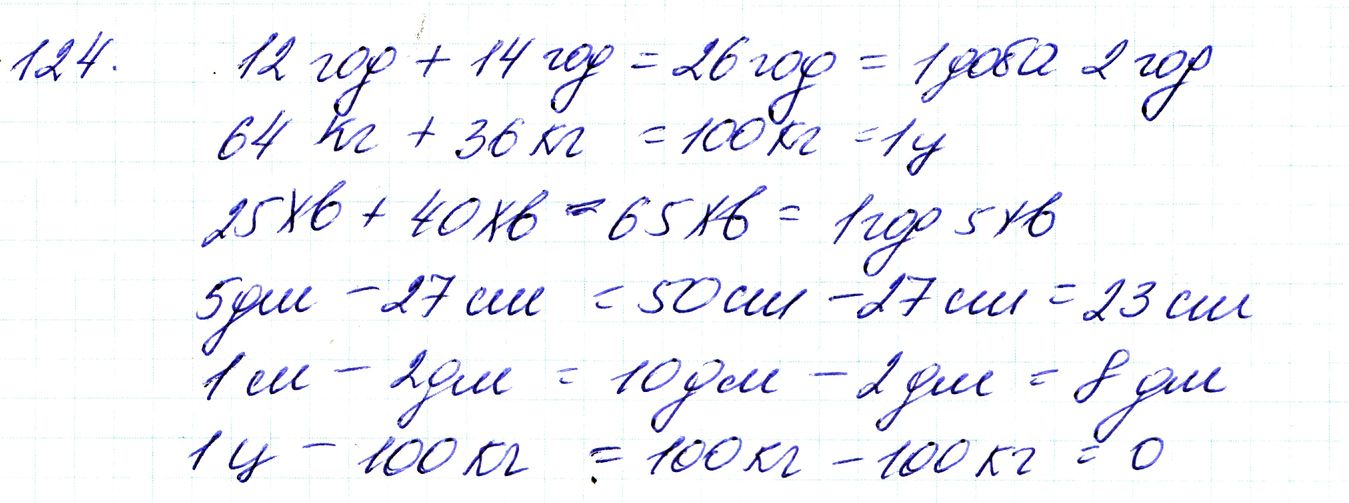 124. 12 год + 14 год = 26 год = 1 доба 2 год
64 кг + 36 кг = 100 кг = 1 ц
25 хв + 40 хв = 65 хв = 1 год 5 хв
5 дм - 27 см = 50 см - 27 см = 23 см
1 м - 2 дм = 10 дм - 2 дм = 8 дм
1 ц - 100 кг = 100 кг - 100 кг = 0